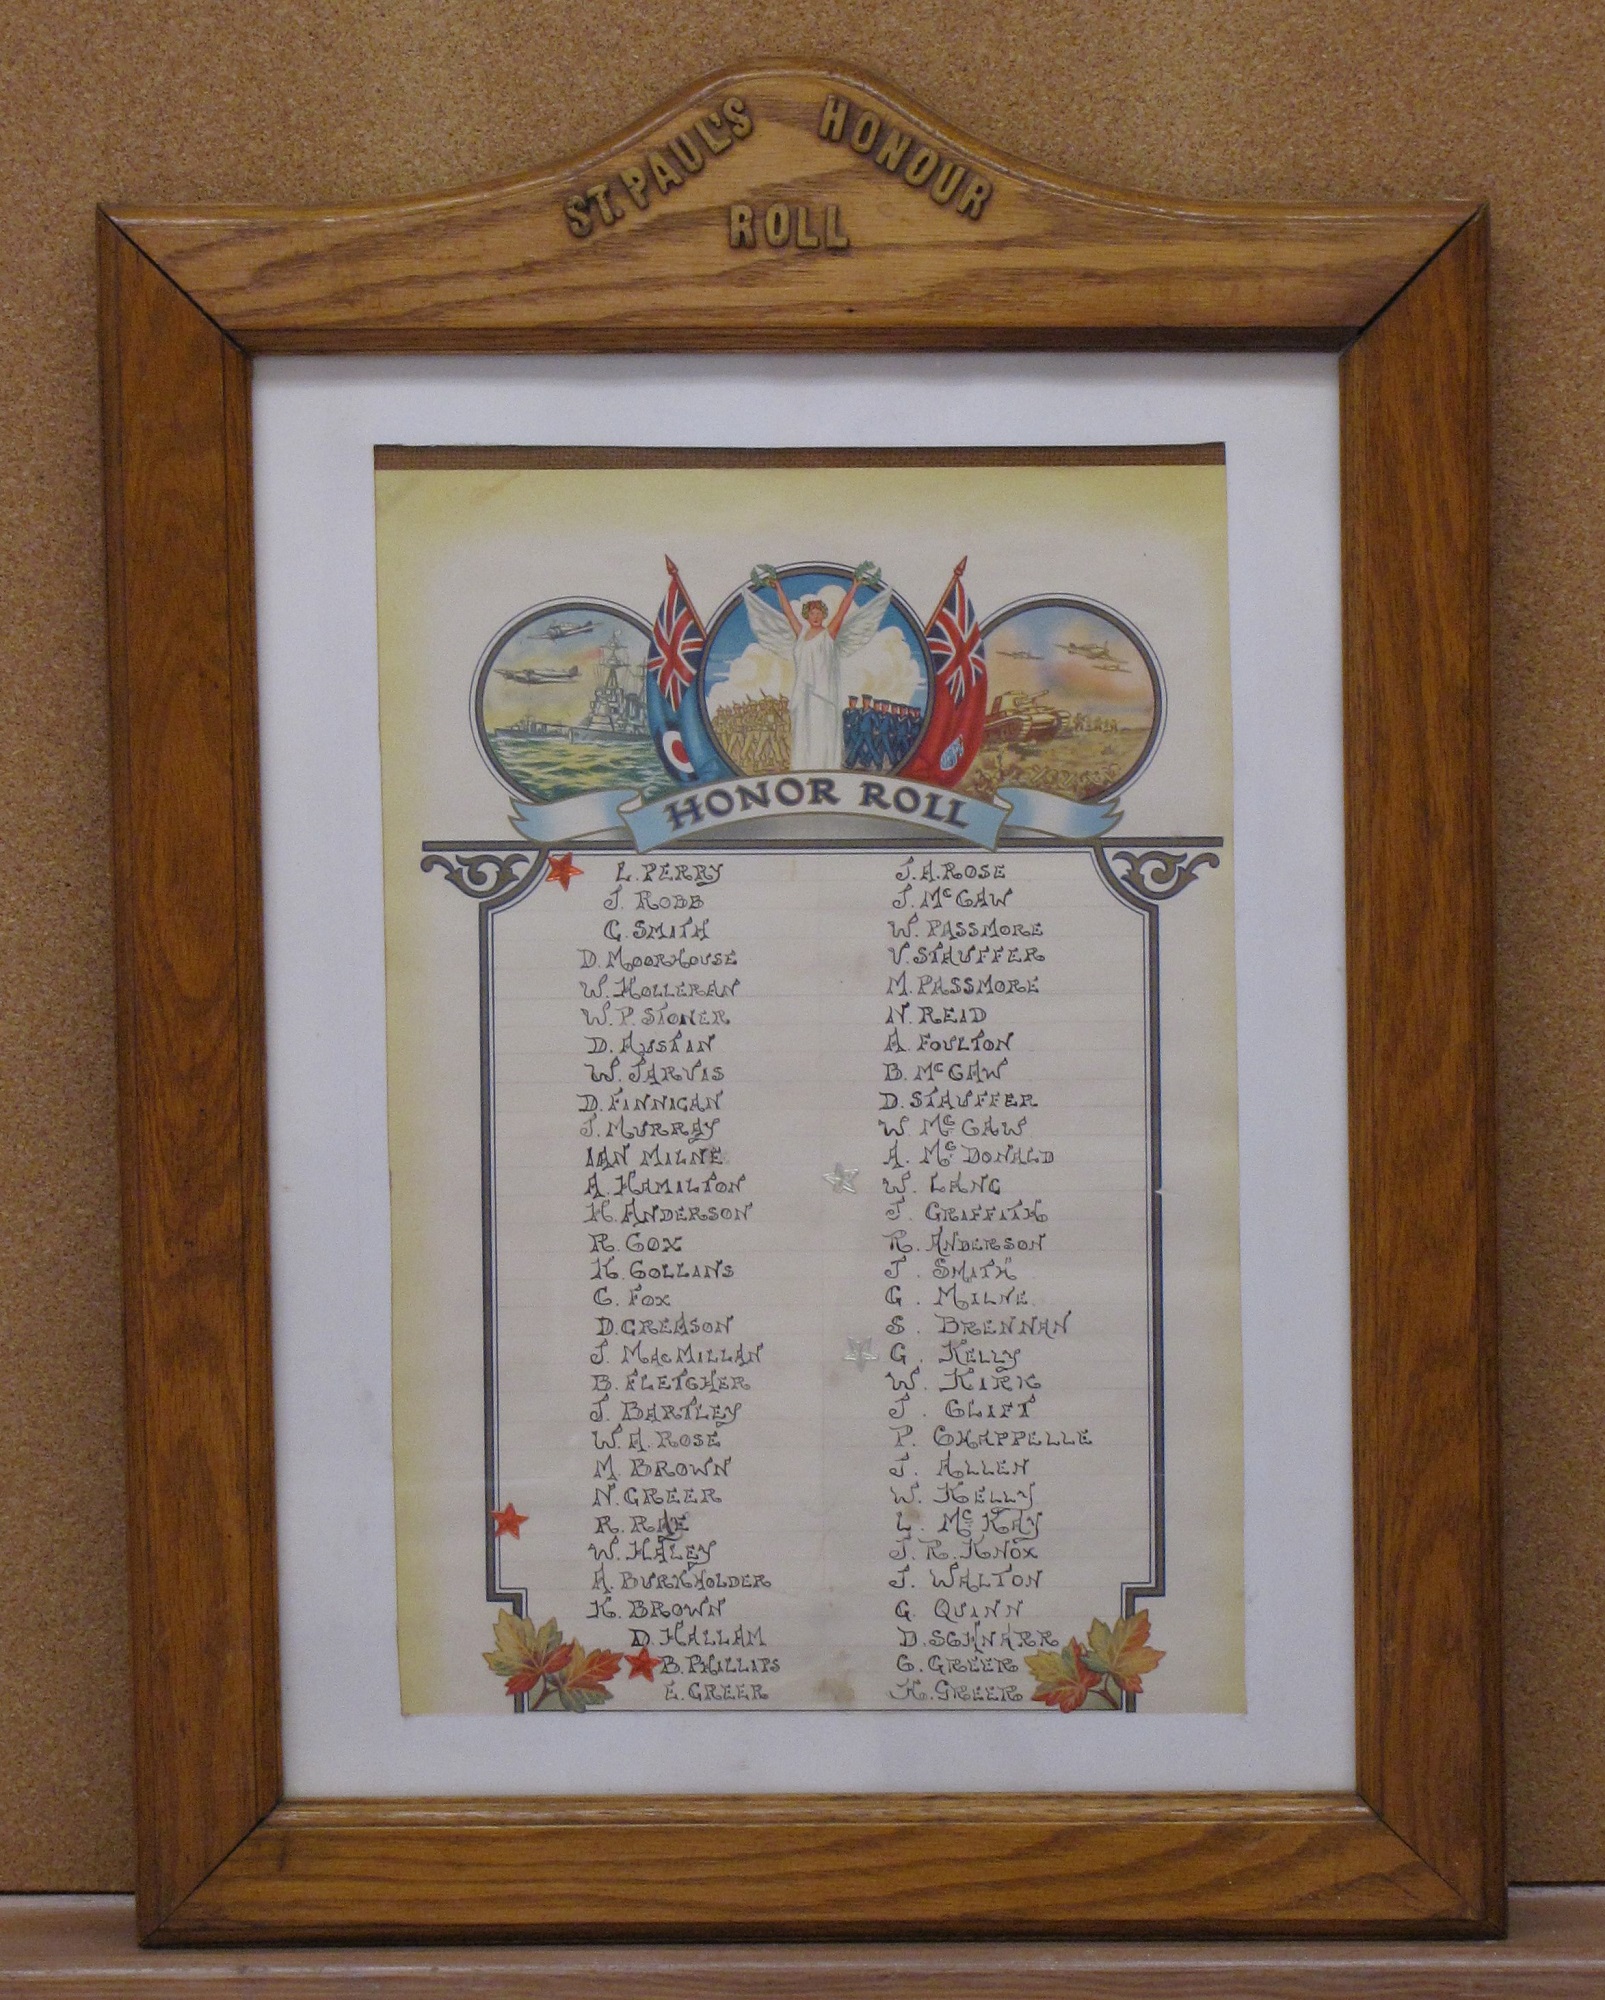 ST. PAUL'S HONOUR
ROLL
HONOR ROLL
L. PERRY
J. ROBB
C. SMITH
D. MOORHOUSE
W. HOLLERAN
W. P. STONER
D. AUSTIN
W. JARVIS
D. FINNIGAN
J. MURRAY
IAN MILNE
A. HAMILTON
H. ANDERSON
R. COX
K. COLLINS
C. FOX
D. GREASON
J. MACMILLAN
B. FLETCHER
J. BARTLEY
W. A. ROSE
M. BROWN
N. GREER
R. RAE
W. HALEY
A. BURKHOLDER
K. BROWN
D. HALLAM
B. PHILLIPS
E. GREER
J. A. ROSE
J. McGAW
W. PASSMORE
V. STAUFFER
M. PASSMORE
N. REID
A. FOULTON
B. McGAW
D. STAUFFER
W McGAW
A. McDONALD
W. LANG
J. GRIFFITH
R. ANDERSON
J. SMITH
G. MILNE
S. BRENNAN
G. KELLY
W. KIRK
J. CLIFT
P. CHAPPELLE
J. ALLEN
W. KELLY
L. McKAY
J. R. KNOX
J. WALTON
G. QUINN
D. SCHNARR
G. GREER
H. GREER